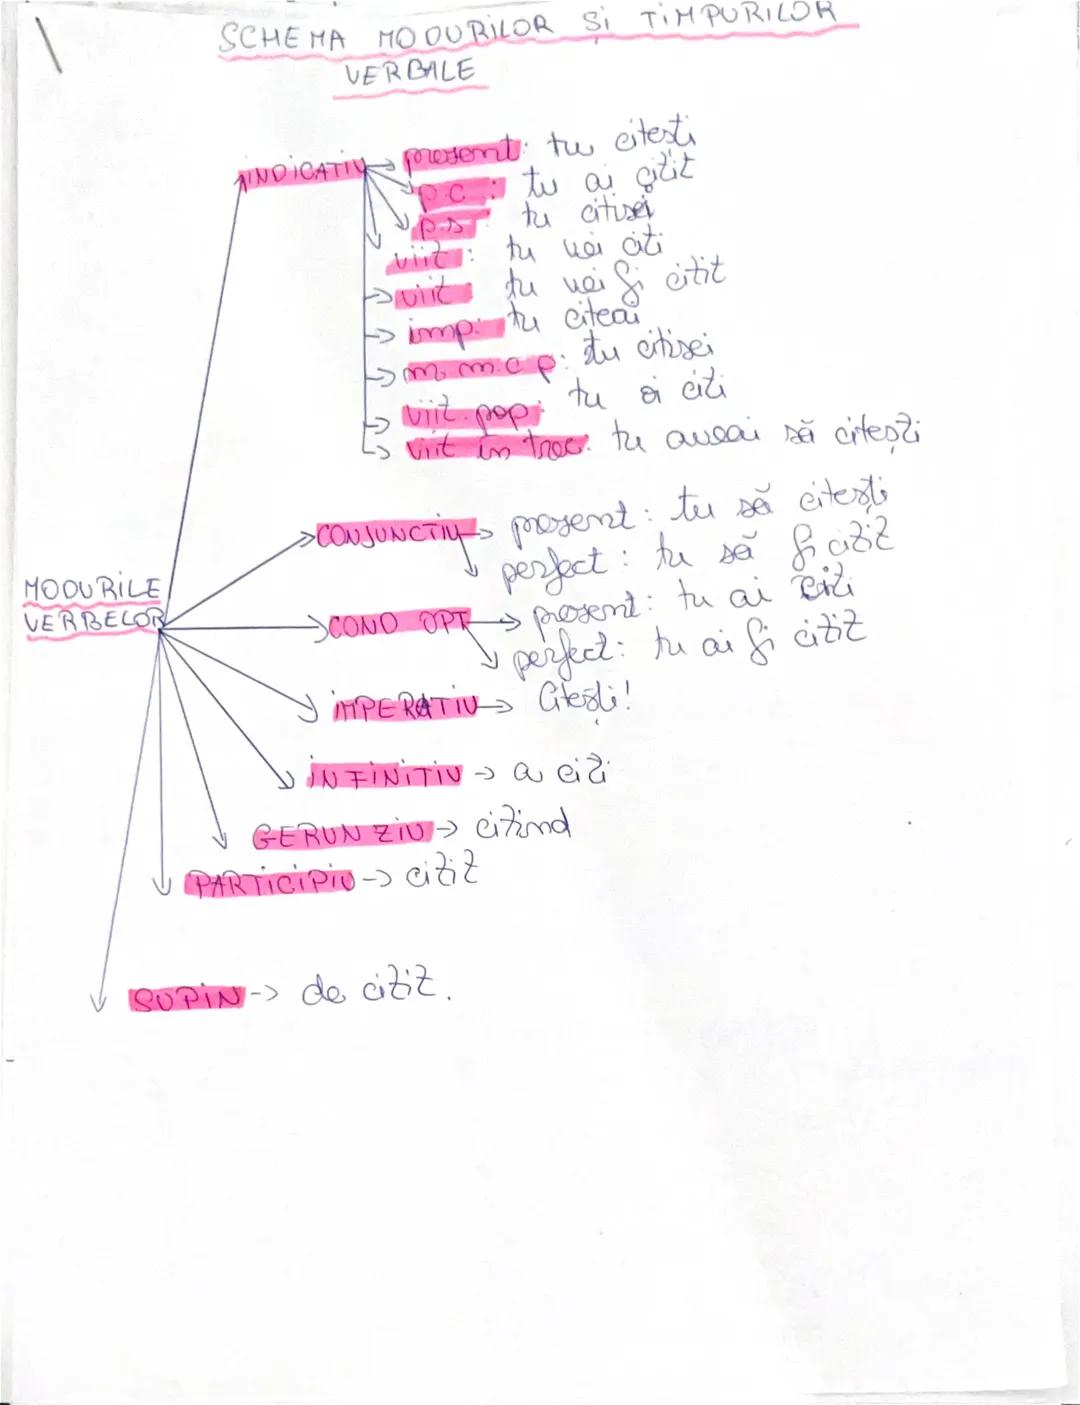 SCHEMA MODURILOR Și TiMPURILOR
VERBALE
INDICATIV
present: tu citești
p.c: tu ai citit
p.s tu citisei
viit: tu vei citi
viit tu vei fi citit
imp: tu citeai
m.m.c.p: tu citisei
viit.pop: tu oi citi
viit în trec: tu aveai să citești
CONJUNCTIV
present: tu să citești
perfect: tu să fi citit
MODURILE
VERBELOR
COND OPT
present: tu ai citi
perfect: tu ai fi citit
iMPERATIV → Citești!
iNFiNiTIV → a citi
GERUNZIU → citind
PARTiCiPiU → citit
SUPiN → de citit.